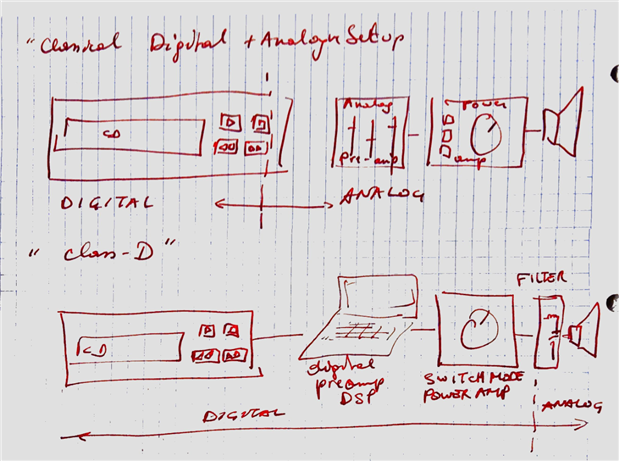 "Classical Digital + Analogue Setup
CD
Analog
pre-amp
Power
amp
DIGITAL
ANALOG
"Class-D"
FILTER
CD
digital
preamp
DSP
SWITCH MODE
POWER AMP
DIGITAL
ANALOG